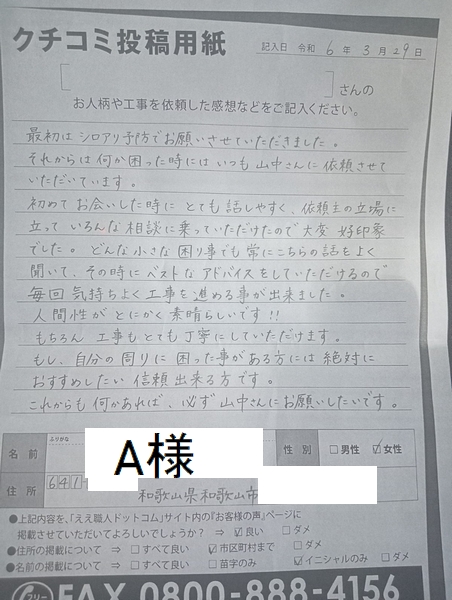 クチコミ投稿用紙
記入日 令和 6 年 3 月 29 日
さんの
お人柄や工事を依頼した感想などをご記入ください。
最初は シロアリ予防でお願いさせていただきました。
それからは 何か困った時には いつも 山中さんに 依頼させて
いただいています。
初めて お会いした時に とても 話しやすく、依頼主の立場に
立って いろんな 相談に 乗っていただけたので 大変 好印象
でした。 どんな 小さな 困り事でも 常に こちらの話を よく
聞いて、その時に ベストな アドバイスをしていただけるので
毎回 気持ちよく 工事を 進める事が 出来ました。
人間性が とにかく 素晴らしいです!!
もちろん 工事も とても 丁寧に していただけます。
もし、自分の 周りに 困った事が ある方には 絶対に
おすすめしたい 信頼 出来る 方です。
これからも 何かあれば、必ず 山中さんに お願いしたいです。
ふりがな
名前 A様 性別 □男性 ☑女性
住所 641
和歌山県和歌山市
●上記内容を、「ええ職人ドットコム」サイト内の『お客様の声』ページに
掲載させていただいてよろしいでしょうか? ⇒ ☑良い □ダメ
●住所の掲載について ⇒ □すべて良い ☑市区町村まで □ダメ
●名前の掲載について ⇒ □すべて良い □苗字のみ ☑イニシャルのみ □ダメ
フリー FAX 0800-888-4156